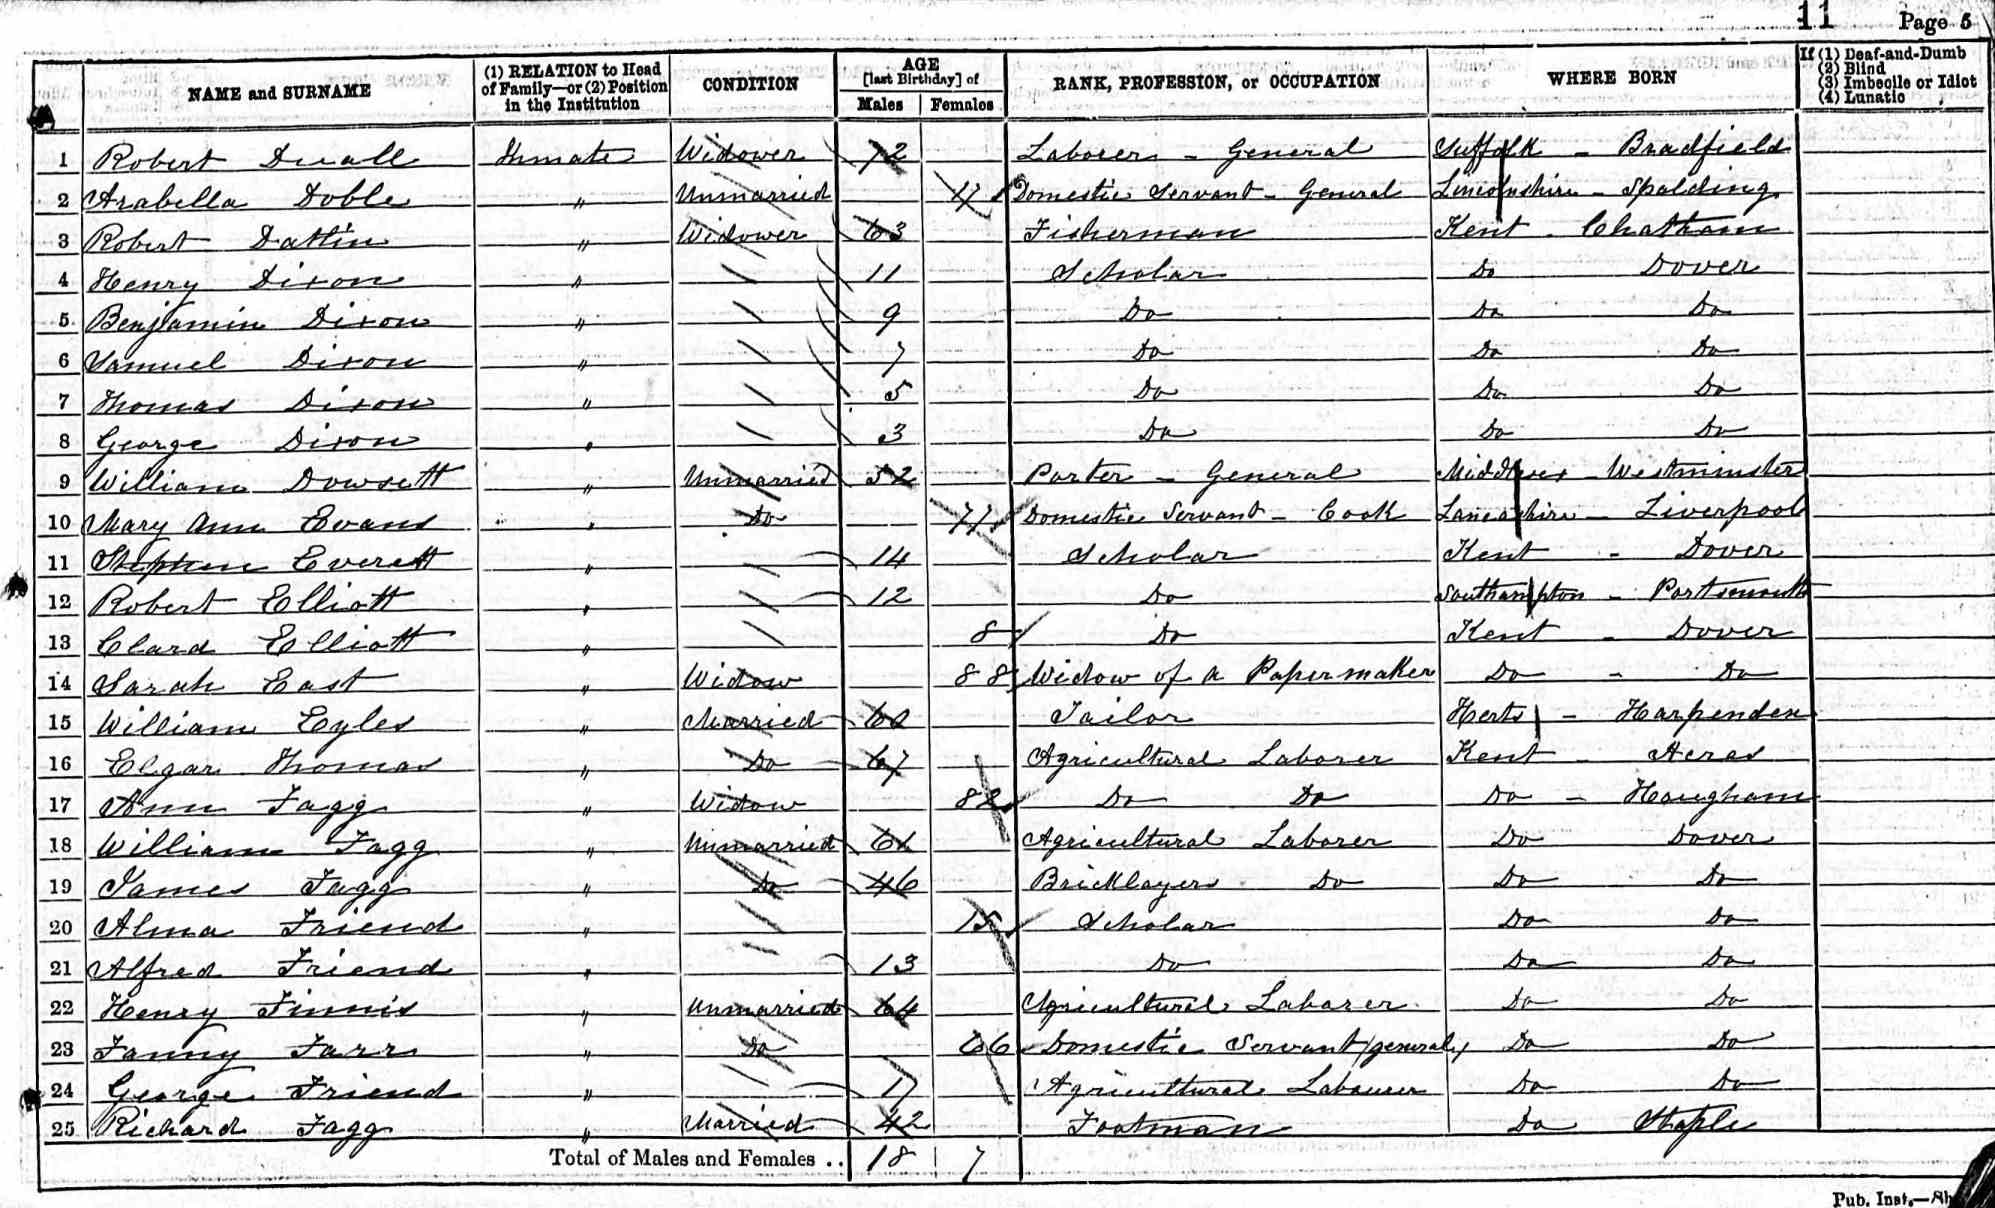 11 Page 5
NAME and SURNAME (1) RELATION to Head of Family—or (2) Position in the Institution CONDITION AGE [last Birthday] of Males Females RANK, PROFESSION, or OCCUPATION WHERE BORN If (1) Deaf-and-Dumb (2) Blind (3) Imbecile or Idiot (4) Lunatic
1 Robert Duall Inmate Widower 72 Laborer - General Suffolk - Bradfield
2 Arabella Doble " Unmarried Domestic Servant - General Lincolnshire - Spalding
3 Robert Datlin " Widower 63 Fisherman Kent - Chatham
4 Henry Dixon " 11 Scholar Do Dover
5 Benjamin Dixon " 9 Do Do Do
6 Samuel Dixon " 7 Do Do Do
7 Thomas Dixon " 5 Do Do Do
8 George Dixon " 3 Do Do Do
9 William Dowsett " Unmarried 52 Porter - General Middlesex - Westminster
10 Mary Ann Evans " Do 77 Domestic Servant - Cook Lancashire - Liverpool
11 Stephen Everett " 14 Scholar Kent - Dover
12 Robert Elliott " 12 Do Southampton - Portsmouth
13 Clard Elliott " 8 Do Kent - Dover
14 Sarah East " Widow 88 Widow of a Papermaker Do - Do
15 William Eyles " Married Tailor Herts - Harpenden
16 Elgar Thomas " Do 67 Agricultural Laborer Kent - Acres
17 Ann Fagg " Widow 82 Do Do Do - Hougham
18 William Fagg " Unmarried Agricultural Laborer Do Dover
19 James Fagg " Do 46 Bricklayers Do Do Do
20 Alma Friend " 15 Scholar Do Do
21 Alfred Friend " 13 Do Do Do
22 Henry Finnis " Unmarried 64 Agricultural Laborer Do Do
23 Fanny Farr " Do 66 Domestic Servant (general) Do Do
24 George Friend " 17 Agricultural Labourer Do Do
25 Richard Fagg " Married 42 Footman Do Staple
Total of Males and Females .. 18 7
Pub. Inst.—Sh